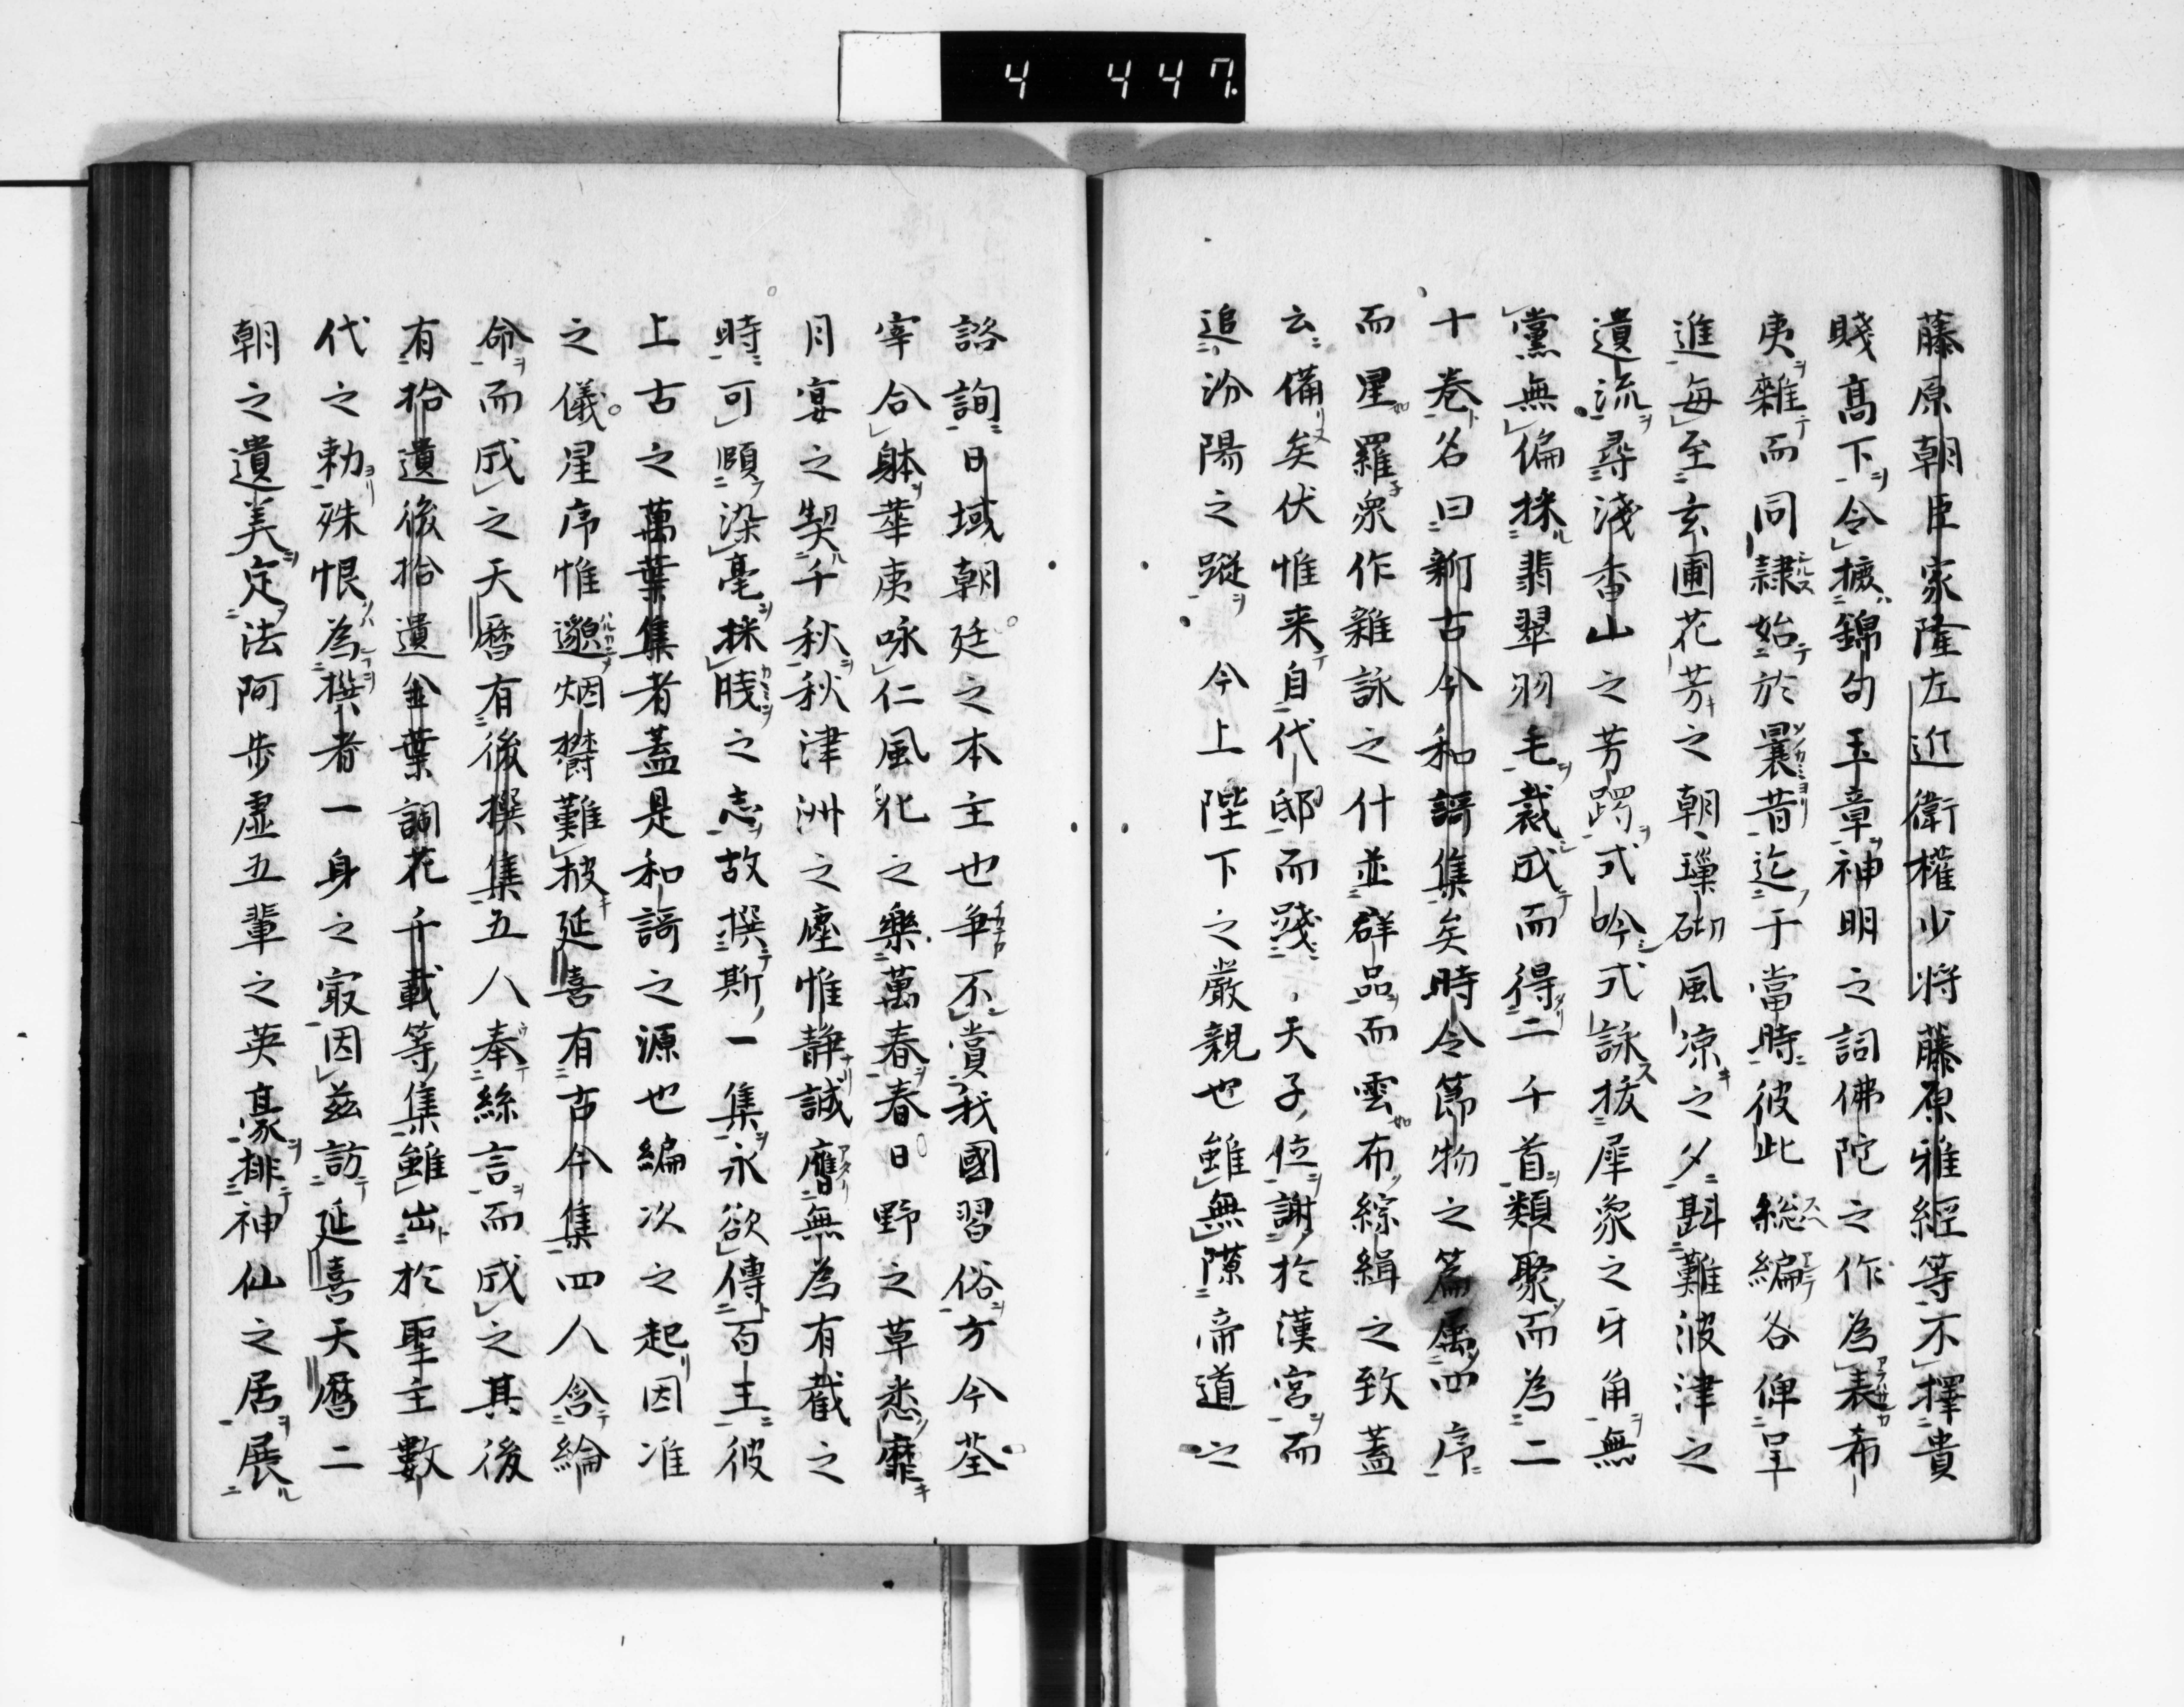 4 447.
藤原朝臣家隆左近衛權少将藤原雅經等不擇貴
賤髙下令摭錦句玉章神明之詞佛陀之作為表希
夷雜而同隷始於曩昔迄于當時彼此総編各俾呈
進毎至玄圃花芳之朝璅砌風凉之夕斟難波津之
遺流尋淺香山之芳躅式吟式詠抜犀象之牙角無
黨無偏採翡翠羽毛裁成而得二千首類聚而為二
十巻名曰新古今和謌集矣時令節物之篇属四序
而星羅衆作雜詠之什並群品而雲布綜緝之致蓋
云備矣伏惟来自代邸而踐天子位謝於漢宮而
追汾陽之蹤　今上陛下之嚴親也雖無隙帝道之
諮詢日域朝廷之本主也争不賞我國習俗方今荃
宰合躰華夷咏仁風化之樂萬春春日野之草悉靡
月宴之契千秋秋津洲之塵惟静誠膺無為有截之
時可頤染毫採牋之志故撰斯一集永欲傳百王彼
上古之萬葉集者蓋是和謌之源也編次之起因准
之儀星序惟邈烟欝難披延喜有古今集四人含綸
命而成之天暦有後撰集五人奉絲言而成之其後
有拾遺後拾遺金葉詞花千載等集雖出於聖主數
代之勅殊恨為撰者一身之㝡因茲訪延喜天暦二
朝之遺美定法阿歩虚五輩之英豪排神仙之居展